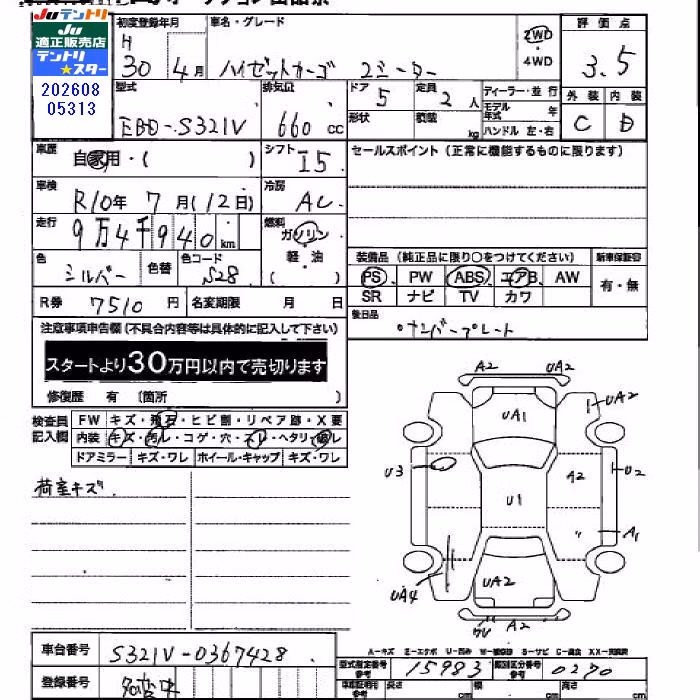 Juテントリ
JU
適正販売店
テントリ
★スター
202608
05313
初度登録年月
H
30 4月
車名・グレード
ハイゼットカーゴ 2シーター
2WD
・
4WD
評価点
3.5
型式
EBD-S321V
排気量
660 cc
ドア 5
形状
定員 2人
積載 kg
ディーラー・並行
モデル年式 年
ハンドル 左・右
外装 内装
C D
車歴
自家用・( )
シフト I5
セールスポイント(正常に機能するものに限ります)
車検
R10年 7月(12日)
冷房 AC
走行
9万4千940km
燃料
ガソリン
軽・油
( )
色
シルバー
色替
色コード
S28
装備品(純正品に限り○をつけてください)
新車保証書
PS PW ABS エアB AW
SR ナビ TV カワ
有・無
R券 7510円
名変期限 月 日
後日品
ナンバープレート
注意事項申告欄(不具合内容等は具体的に記入して下さい)
スタートより30万円以内で売切ります
修復歴 有 〔箇所 〕
検査員
記入欄
FW キズ・飛石・ヒビ割・リペア跡・X要
内装 キズ・汚レ・コゲ・穴・スレ・ヘタリ・破レ
ドアミラー キズ・ワレ ホイール・キャップ キズ・ワレ
荷室キズ.
A2 UA2
UA1
UA2
U3
U1
A2
U2
A1
UA4
UA2
A2
A-キズ E-エクボ U-凹み
S-サビ C-腐食
車台番号 S321V-0367428
登録番号
型式指定番号
参考
15983
類別区分番号
参考
0270
長さ cm
幅 cm
高さ cm